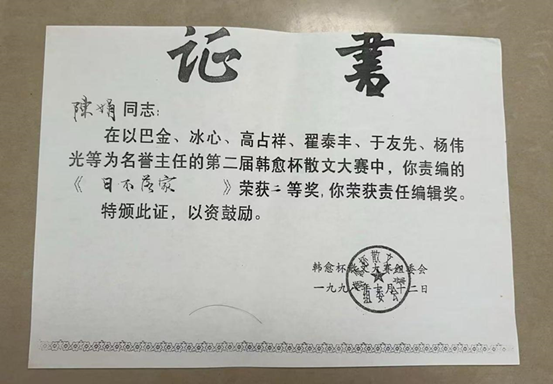 证 书
陳娟同志:
在以巴金、冰心、高占祥、翟泰丰、于友先、杨伟
光等为名誉主任的第二届韩愈杯散文大赛中,你责编的
《日不落家》荣获二等奖,你荣获责任编辑奖。
特颁此证,以资鼓励。
韩愈杯散文大赛组委会
一九九八年十月十二日